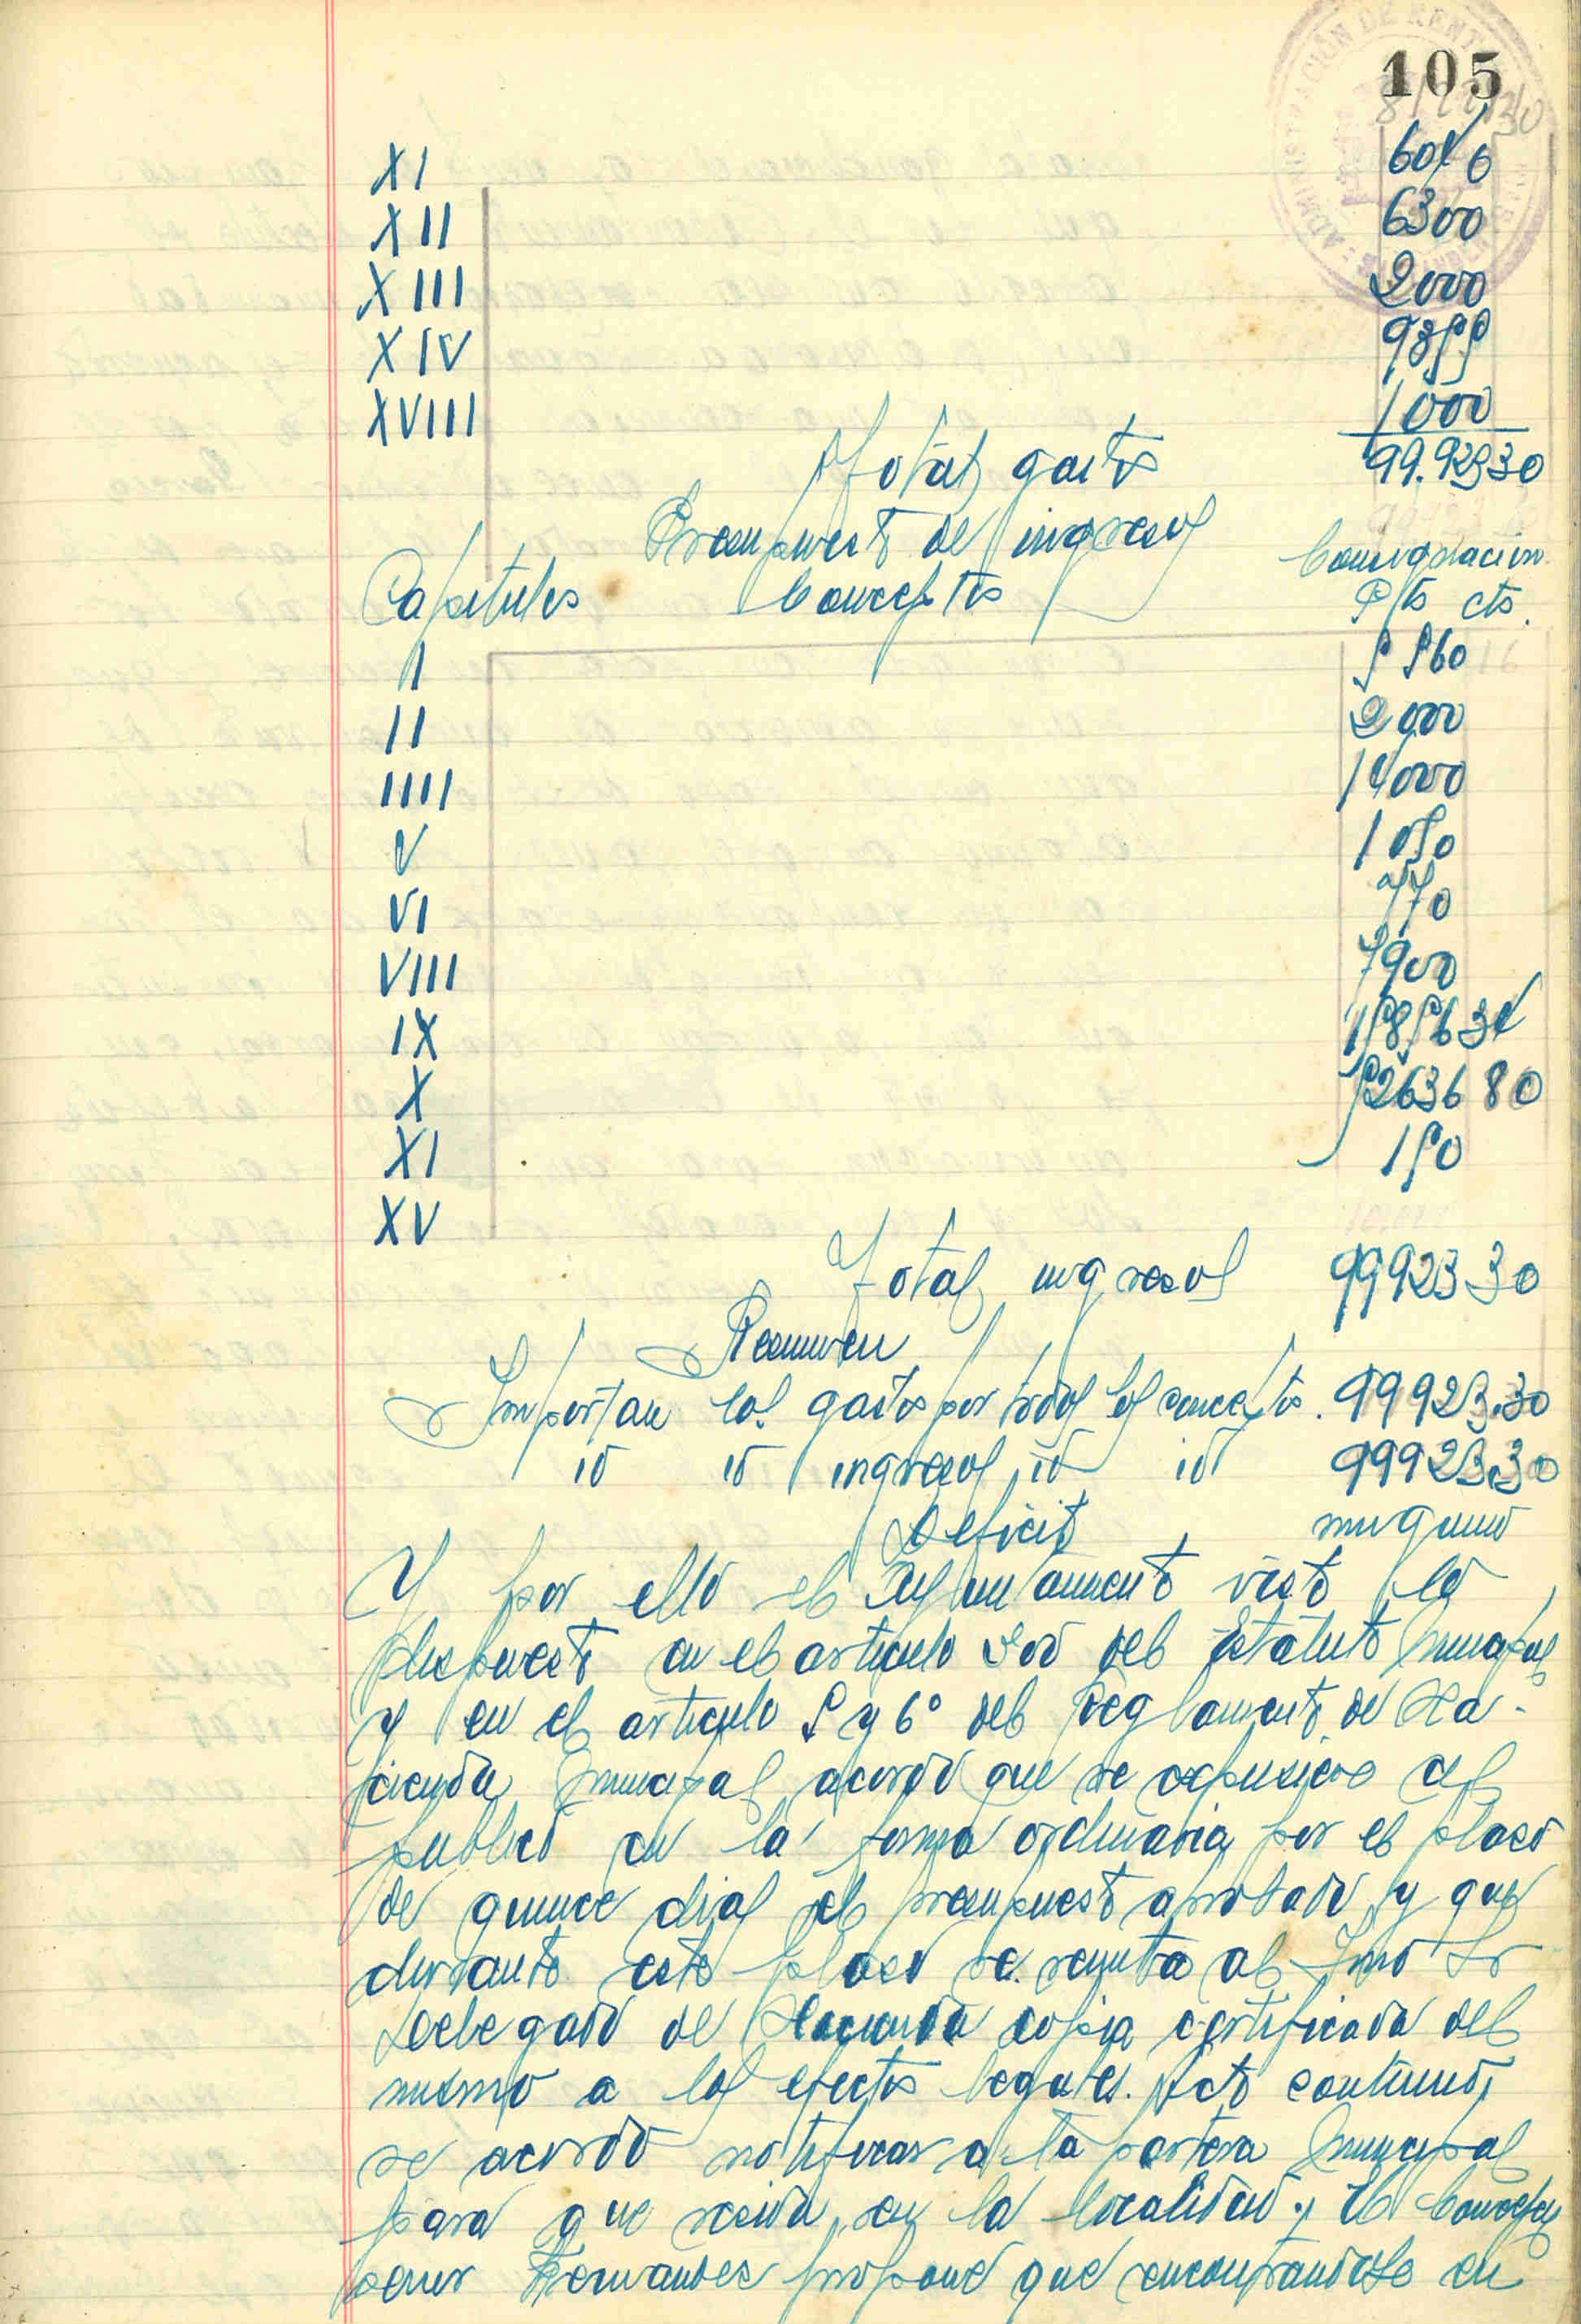 105
XI
XII 6300
XIII 2000
XIV
XVIII 1000
Total gastos 99.923 30
Presupuesto de ingresos
Capitulos Conceptos Consignacion
Pts cts.
I 5 560
II 2000
IIII 14000
V 1050
VI 770
VIII 7900
IX
X 52636 80
XI 150
XV
Total ingresos 99923 30
Resumen
Importan los gastos por todos los conceptos. 99923.30
id id ingresos id id 99923.30
Deficit ninguno
Y por ello el Ayuntamiento visto lo
dispuesto en el articulo 300 del Estatuto Municipal
y en el articulo 5 y 6º del Reglamento de Ha-
cienda Municipal acordó que se expusiera al
publico en la forma ordinaria por el plazo
de quince dias el presupuesto aprobado y que
durante este plazo se remita al Ilmo Sr
Delegado de Hacienda copia certificada del
mismo a los efectos legales. Acto continuo,
se acordó notificar a la partera Municipal
para que resida en la localidad. El Concejal
señor Fernandez propone que encontrandose en